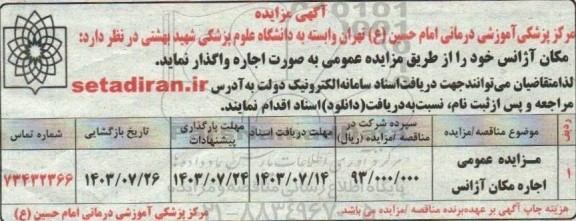 آگهی مزایده
مرکز پزشکی آموزشی درمانی امام حسین (ع) تهران وابسته به دانشگاه علوم پزشکی شهید بهشتی در نظر دارد:
مکان آژانس خود را از طریق مزایده عمومی به صورت اجاره واگذار نماید.
لذا متقاضیان می‌توانند جهت دریافت اسناد سامانه الکترونیک دولت به آدرس setadiran.ir
مراجعه و پس از ثبت نام، نسبت به دریافت (دانلود) اسناد اقدام نمایند.
ردیف | موضوع مناقصه/مزایده | سپرده شرکت در مناقصه /مزایده (ریال) | مهلت دریافت اسناد | مهلت بارگذاری پیشنهادات | تاریخ بازگشایی | شماره تماس
۱ | مزایده عمومی اجاره مکان آژانس | ۹۳/۰۰۰/۰۰۰ | ۱۴۰۳/۰۷/۱۴ | ۱۴۰۳/۰۷/۲۴ | ۱۴۰۳/۰۷/۲۶ | ۷۳۴۳۲۳۶۶
هزینه چاپ آگهی بر عهده برنده مناقصه /مزایده می باشد.
مرکز پزشکی آموزشی درمانی امام حسین (ع)